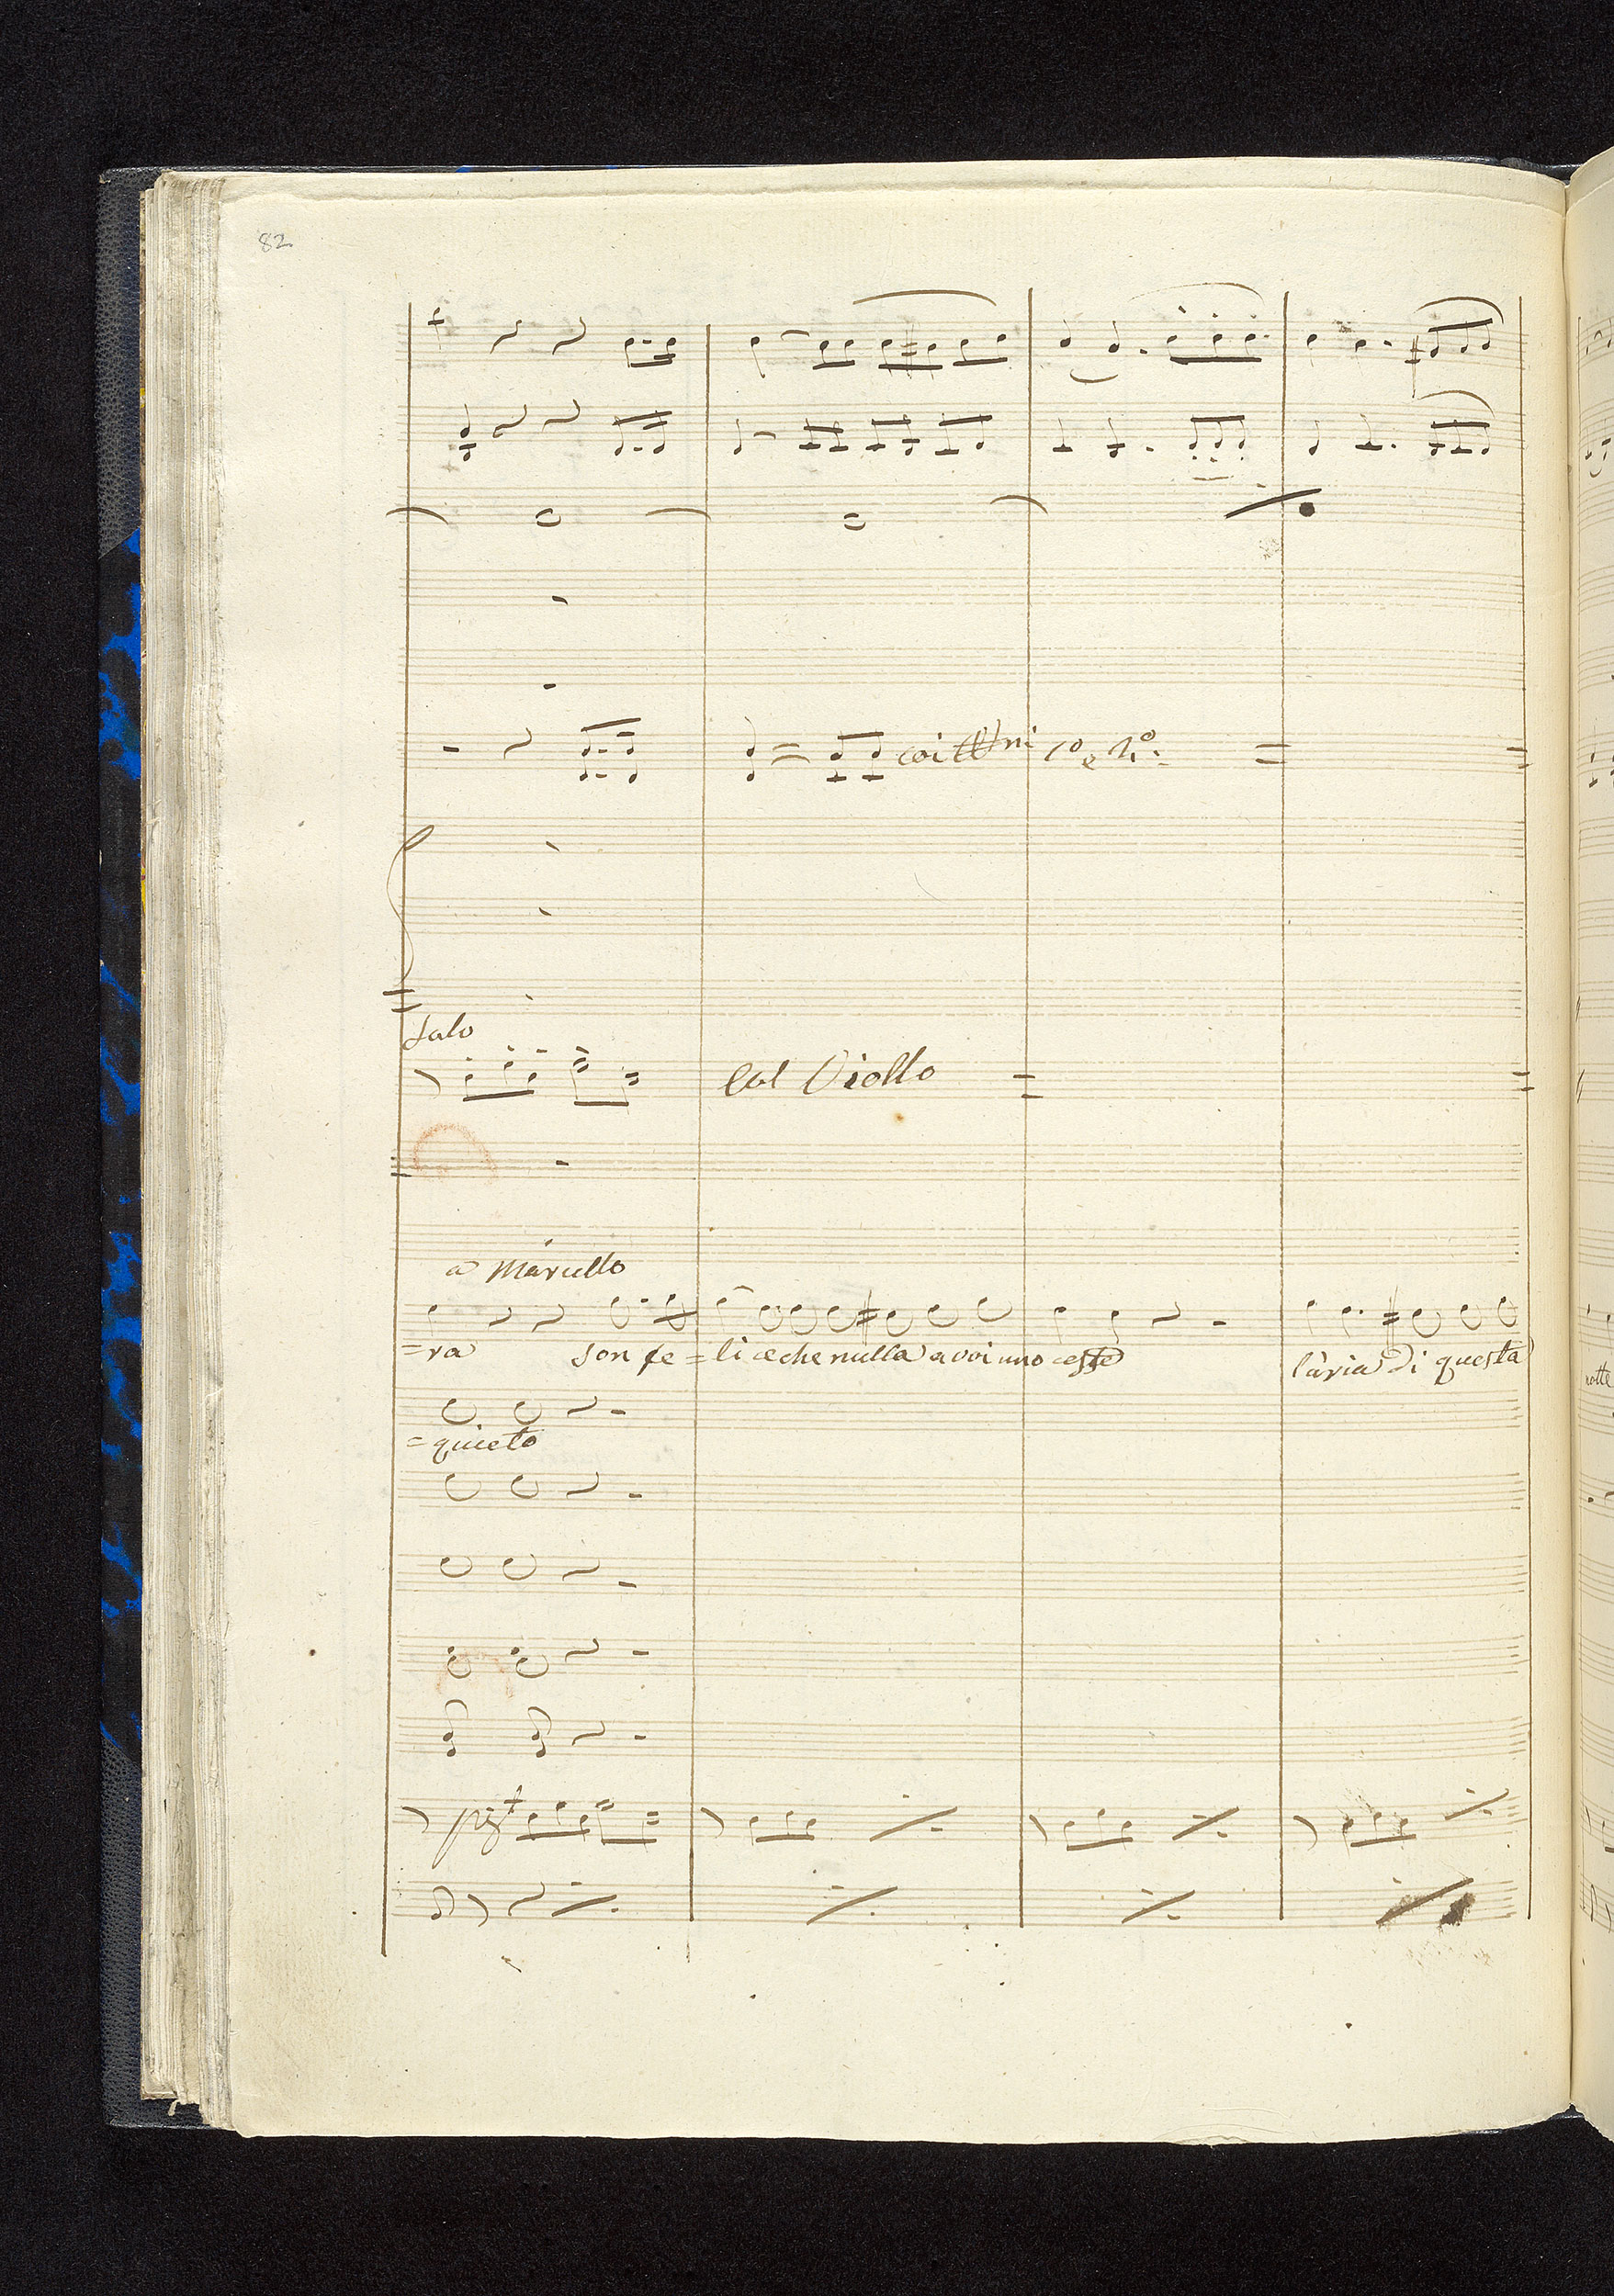 82
coi Vni 1o e 2o:
Solo
Col Violl.o
a Marcello
=ra son fe=lice che nulla a voi uno cesse l'aria di questa
=quieto
piz
notte